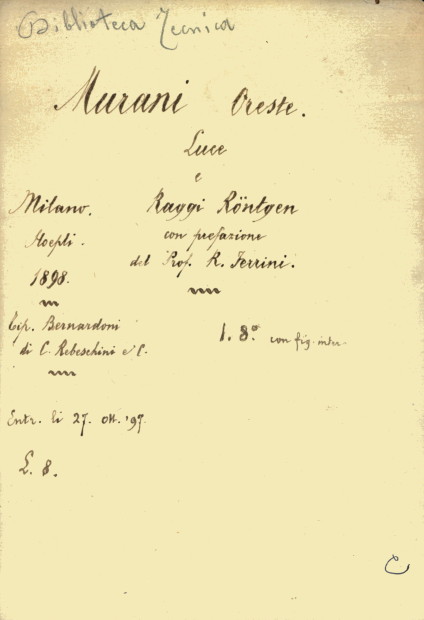 Biblioteca Tecnica
Murani Oreste.
Luce
e
Raggi Röntgen
con prefazione
del Prof. R. Ferrini.
Milano.
Hoepli.
1898.
Tip. Bernardoni
di C. Rebeschini e C.
1. 8.° con fig. inter.
Entr. li 27. Ott. '97.
L. 8.
C